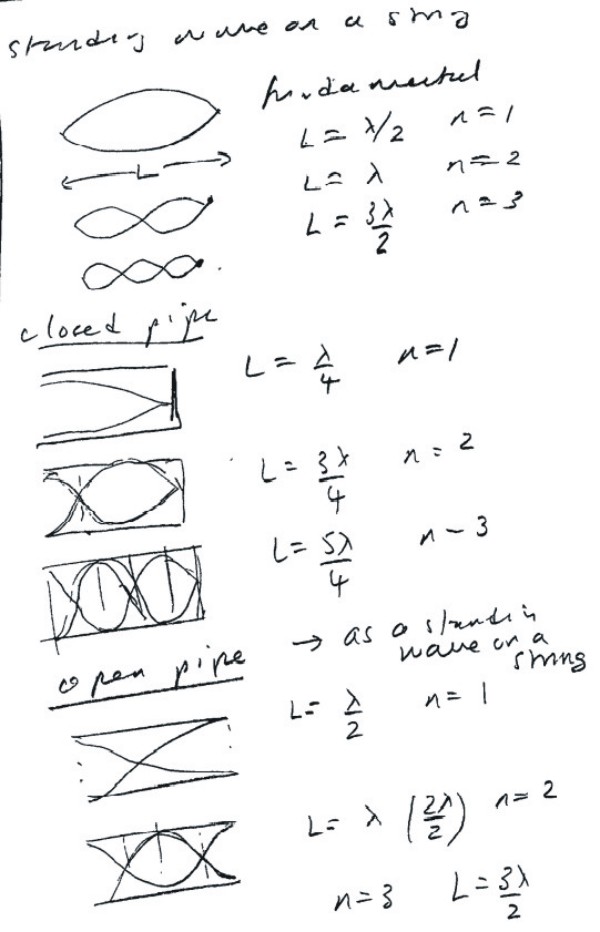 standing wave on a string
fundamental
L = λ/2 n = 1
← L →
L = λ n = 2
L = 3λ/2 n = 3
closed pipe
L = λ/4 n = 1
L = 3λ/4 n = 2
L = 5λ/4 n - 3
open pipe → as a standing
wave on a
string
L = λ/2 n = 1
L = λ (2λ/2) n = 2
n = 3 L = 3λ/2